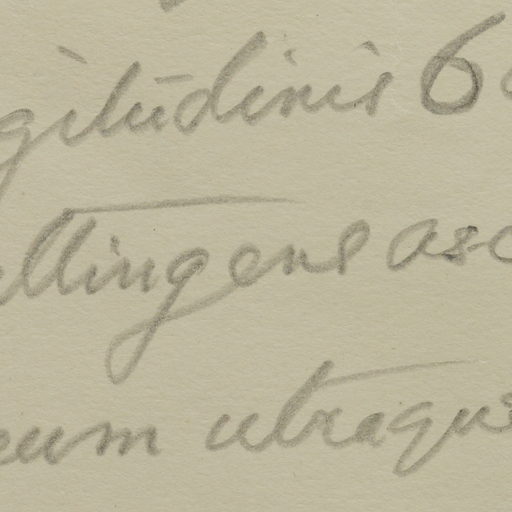 gitudinis 6
ttingens asc
eum utraque